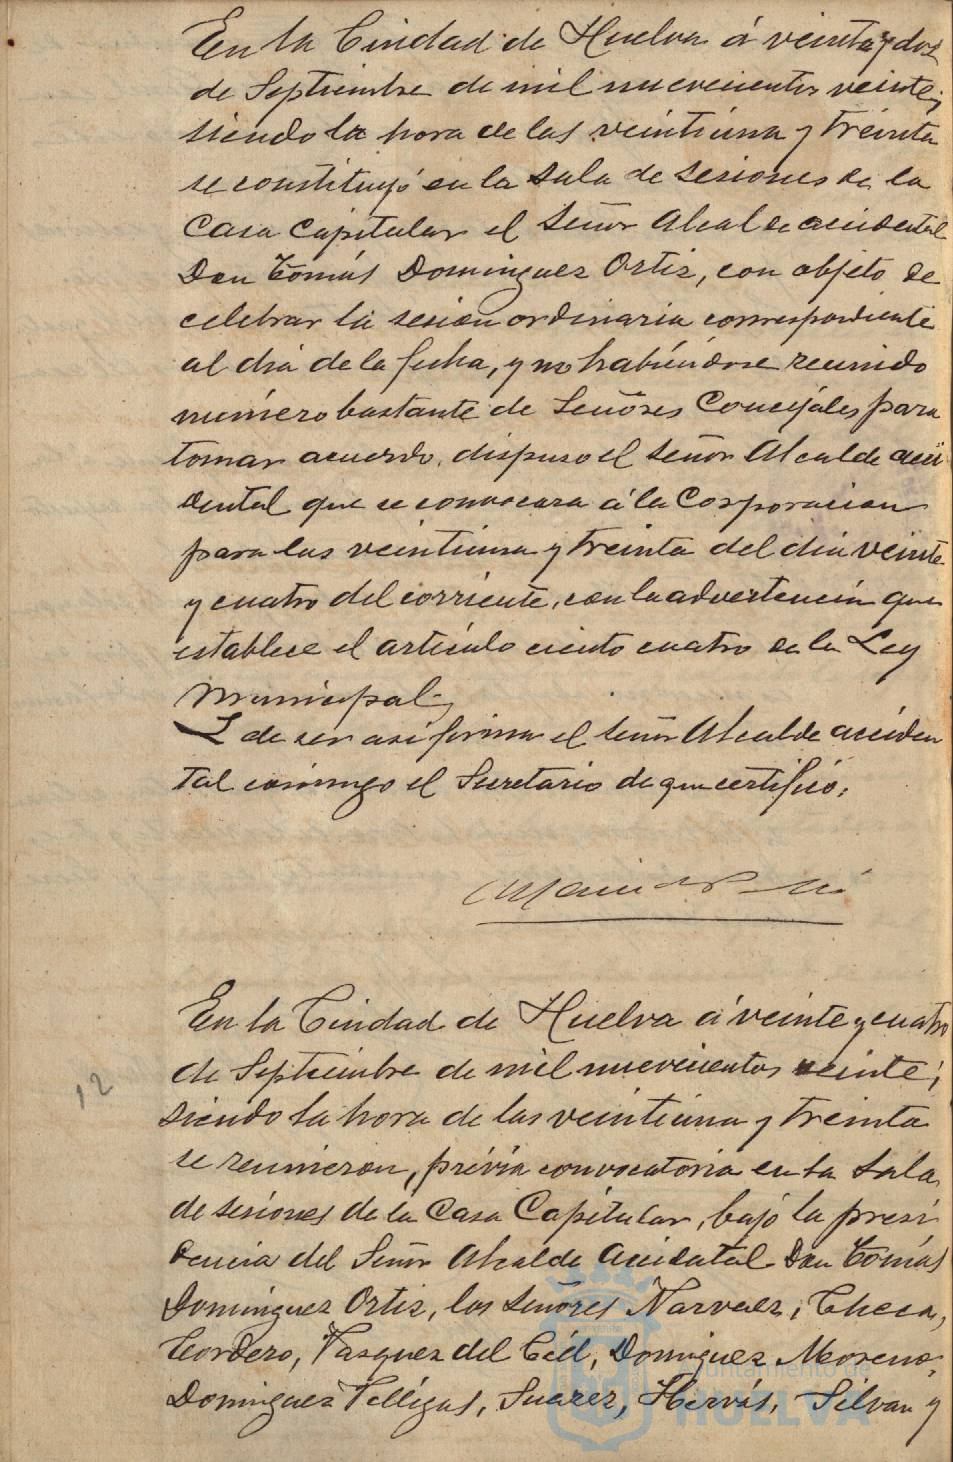 En la Ciudad de Huelva á veinte y dos
de Septiembre de mil nuevecientos veinte;
siendo la hora de las veintiuna y treinta
se constituyó en la sala de sesiones de la
Casa Capitular el Señor Alcalde accidental
Don Tomás Dominguez Ortiz, con objeto de
celebrar la sesion ordinaria correspondiente
al dia de la fecha, y no habiéndose reunido
número bastante de Señores Concejales para
tomar acuerdo, dispuso el Señor Alcalde acci
dental que se convocara á la Corporacion
para las veintiuna y treinta del dia veinte
y cuatro del corriente, con la advertencia que
establece el artículo ciento cuatro de la Ley
Municipal.
Y de ser asi firma el Señor Alcalde acciden
tal conmigo el Secretario de que certifico.
En la Ciudad de Huelva á veinte y cuatro
12
de Septiembre de mil nuevecientos veinte;
siendo la hora de las veintiuna y treinta
se reunieron, prévia convocatoria en la Sala
de sesiones de la Casa Capitular, bajo la presi
dencia del Señor Alcalde Accidental Don Tomás
Dominguez Ortiz, los Señores Narvaez, Checa,
Cordero, Vasquez del Cid, Dominguez Moreno,
Dominguez Telligas, Suarez, Hervás, Silvan y
Ayuntamiento de
HUELVA